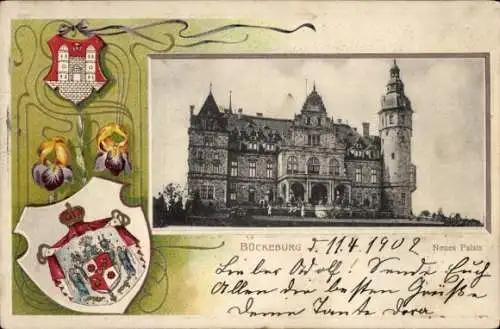 BÜCKEBURG d. 11.4.1902 Neues Palais
Lieber Adolf! Sende Euch
Allen die besten Grüsse
Deine Tante Dora